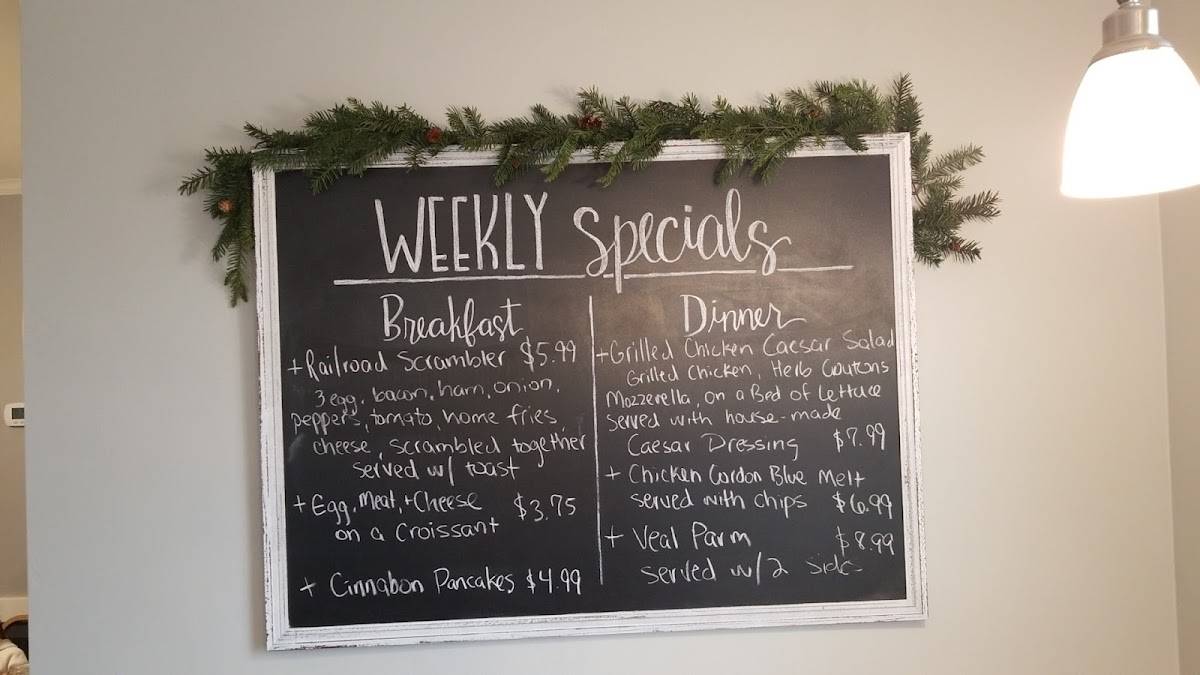 WEEKLY Specials
Breakfast
+ Railroad Scrambler $5.99
3 egg, bacon, ham, onion,
peppers, tomato, home fries,
cheese, scrambled together
served w/ toast
+ Egg, Meat, + Cheese $3.75
on a Croissant
+ Cinnabon Pancakes $4.99
Dinner
+ Grilled Chicken Caesar Salad
Grilled Chicken, Herb Coutons
Mozzerella, on a Bed of Lettuce
served with house-made
Caesar Dressing $7.99
+ Chicken Cordon Blue Melt
served with chips $6.99
+ Veal Parm $8.99
served w/ 2 sides